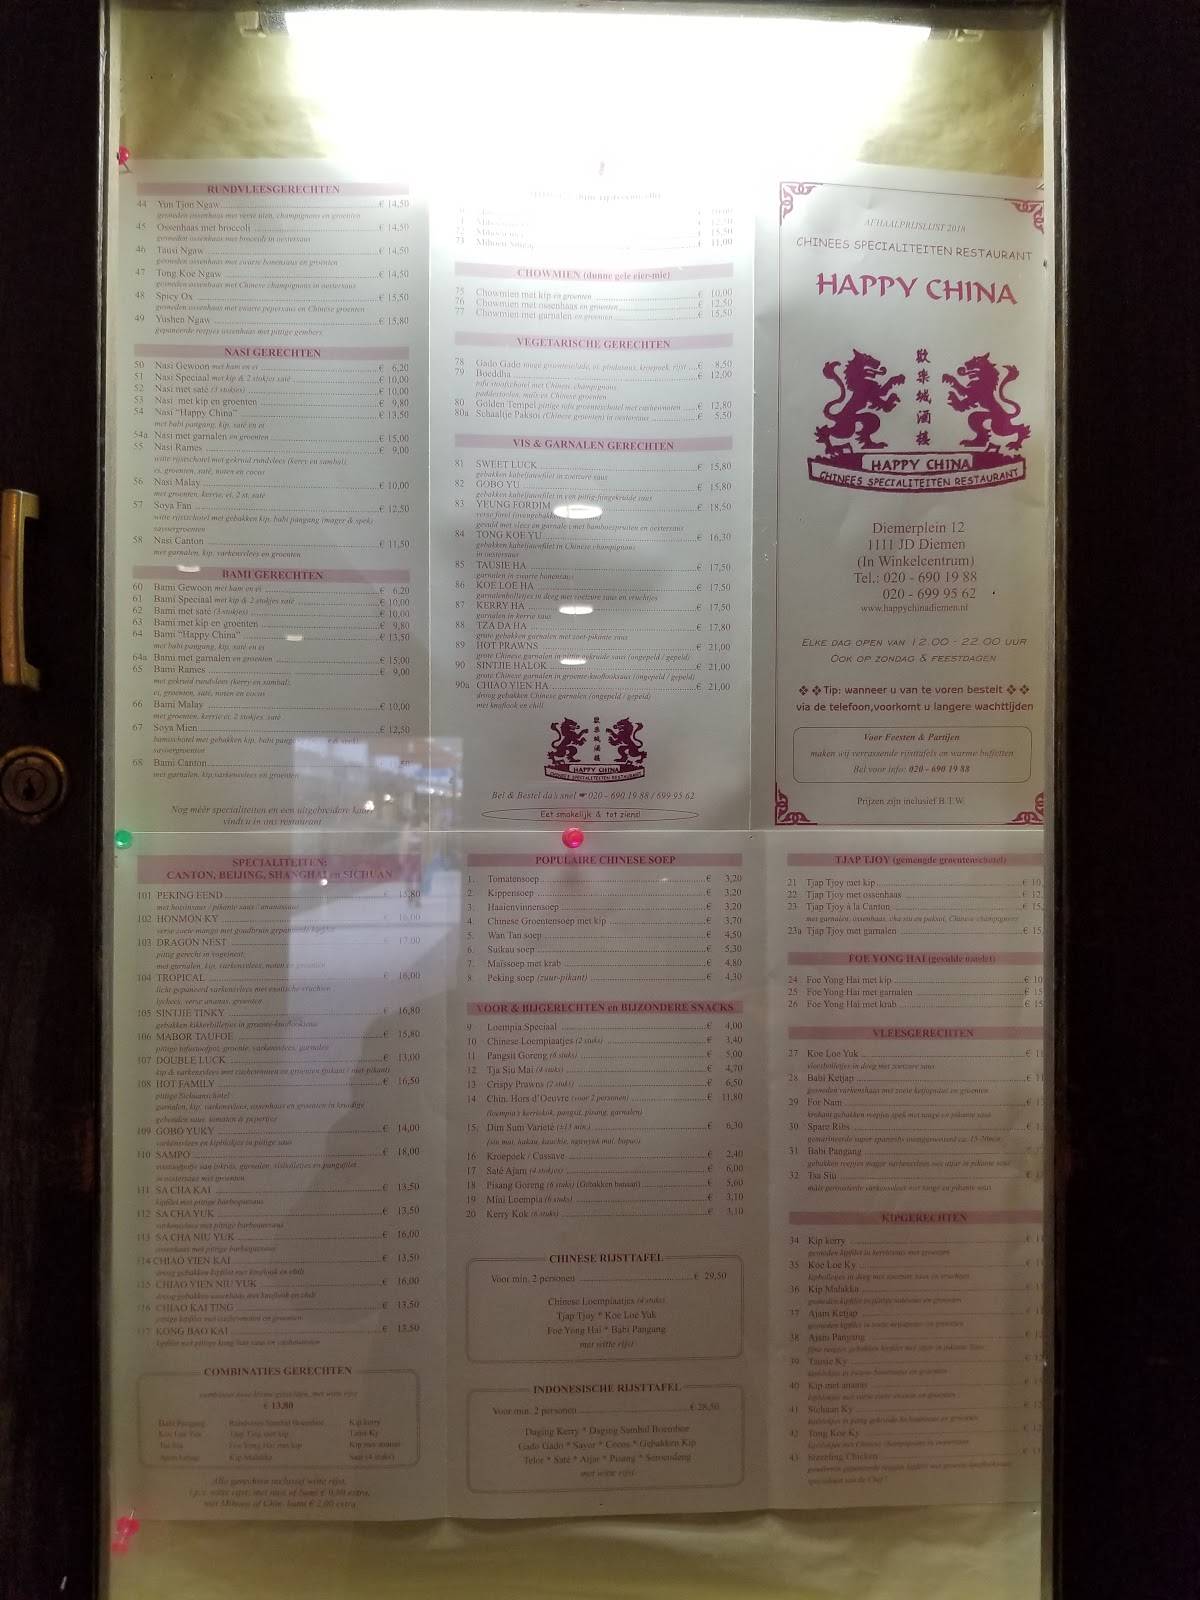 RUNDVLEESGERECHTEN
44 Yun Tjon Ngaw € 14,50
gesneden ossenhaas met verse uien, champignons en groenten
45 Ossenhaas met broccoli € 14,50
gesneden ossenhaas met broccoli in oestersaus
46 Tausi Ngaw € 14,50
gesneden ossenhaas met zwarte bonensaus en groenten
47 Tong Koe Ngaw € 14,50
gesneden ossenhaas met Chinese champignons in oestersaus
48 Spicy Ox € 15,50
gesneden ossenhaas met zwarte pepersaus en Chinese groenten
49 Yushen Ngaw € 15,80
gepaneerde reepjes ossenhaas met pittige gembers
NASI GERECHTEN
50 Nasi Gewoon met ham en ei € 6,20
51 Nasi Speciaal met kip & 2 stokjes saté € 10,00
52 Nasi met saté (3 stokjes) € 10,00
53 Nasi met kip en groenten € 9,80
54 Nasi "Happy China" € 13,50
met babi pangang, kip, saté en ei
54a Nasi met garnalen en groenten € 15,00
55 Nasi Rames € 9,00
witte rijstschotel met gekruid rundvlees (kerry en sambal),
ei, groenten, saté, noten en cocos
56 Nasi Malay € 10,00
met groenten, kerrie, ei, 2 st. saté
57 Soya Fan € 12,50
witte rijstschotel met gebakken kip, babi pangang (mager & spek)
sayoergroenten
58 Nasi Canton € 11,50
met garnalen, kip, varkensvlees en groenten
BAMI GERECHTEN
60 Bami Gewoon met ham en ei € 6,20
61 Bami Speciaal met kip & 2 stokjes saté € 10,00
62 Bami met saté (3 stokjes) € 10,00
63 Bami met kip en groenten € 9,80
64 Bami "Happy China" € 13,50
met babi pangang, kip, saté en ei
64a Bami met garnalen en groenten € 15,00
65 Bami Rames € 9,00
met gekruid rundvlees (kerry en sambal),
ei, groenten, saté, noten en cocos
66 Bami Malay € 10,00
met groenten, kerrie ei, 2 stokjes, saté
67 Soya Mien € 12,50
bamischotel met gebakken kip, babi & spek)
sayoergroenten
68 Bami Canton ,50
met garnalen, kip, varkensvlees en groenten
Nog méér specialiteiten en een uitgebreidere kaart
vindt u in ons restaurant
€ 10,00
€ 12,50
72 Mihoen € 15,50
73 Mihoen Singap € 11,00
CHOWMIEN (dunne gele eier-mie)
75 Chowmien met kip en groenten € 10,00
76 Chowmien met ossenhaas en groenten € 12,50
77 Chowmien met garnalen en groenten € 15,50
VEGETARISCHE GERECHTEN
78 Gado Gado rauge groentesalade, ei, pindasaus, kroepoek, rijst € 8,50
79 Boeddha € 12,00
tofu stoofschotel met Chinese champignons,
paddestoelen, maïs en Chinese groenten
80 Golden Tempel pittige tofu groenteschotel met cashewnoten € 12,80
80a Schaaltje Paksoi (Chinese groenten) in oestersaus € 5,50
VIS & GARNALEN GERECHTEN
81 SWEET LUCK € 15,80
gebakken kabeljauwfilet in zoetzure saus
82 GOBO YU € 15,80
gebakken kabeljauwfilet in een pittig-fijngekruide saus
83 YEUNG FORDIM € 18,50
verse forel
gevuld met vlees en garnalen met bamboespruiten en oestersaus
84 TONG KOE YU € 16,30
gebakken kabeljauwfilet in Chinese champignons
in oestersaus
85 TAUSIE HA € 17,50
garnalen in zwarte bonensaus
86 KOE LOE HA € 17,50
garnalenbolletjes in deeg met zoetzure saus en vruchtjes
87 KERRY HA € 17,50
garnalen in kerrie saus
88 TZA DA HA € 17,80
grote gebakken garnalen met zoet-pikante saus
89 HOT PRAWNS € 21,00
grote Chinese garnalen in pittig gekruide saus (ongepeld / gepeld)
90 SINTJIE HALOK € 21,00
grote Chinese garnalen in groente-knoflooksaus (ongepeld / gepeld)
90a CHIAO YIEN HA € 21,00
droog gebakken Chinese garnalen (ongepeld / gepeld)
met knoflook en chili
歡樂城酒樓
HAPPY CHINA
CHINEES SPECIALITEITEN RESTAURANT
Bel & Bestel da's snel ☛ 020 - 690 19 88 / 699 95 62
Eet smakelijk & tot ziens!
AFHAALPRIJSLIJST 2018
CHINEES SPECIALITEITEN RESTAURANT
HAPPY CHINA
歡樂城酒樓
HAPPY CHINA
CHINEES SPECIALITEITEN RESTAURANT
Diemerplein 12
1111 JD Diemen
(In Winkelcentrum)
Tel.: 020 - 690 19 88
020 - 699 95 62
www.happychinadiemen.nl
ELKE DAG OPEN VAN 12.00 - 22.00 UUR
OOK OP ZONDAG & FEESTDAGEN
❖ ❖ Tip: wanneer u van te voren bestelt ❖ ❖
via de telefoon,voorkomt u langere wachttijden
Voor Feesten & Partijen
maken wij verrassende rijsttafels en warme buffetten
Bel voor info: 020 - 690 19 88
Prijzen zijn inclusief B.T.W.
SPECIALITEITEN:
CANTON, BEIJING, SHANGHAI en SICHUAN
101 PEKING EEND € 15,80
met hoisinsaus / pikante saus / ananassaus
102 HONMON KY € 16,00
verse zoete mango met goudbruin gepaneerde kipfilet
103 DRAGON NEST € 17,00
pittig gerecht in vogelnest,
met garnalen, kip, varkensvlees, noten en groenten
104 TROPICAL € 16,00
licht gepaneerd varkensvlees met exotische vruchten
lychees, verse ananas, groenten
105 SINTJIE TINKY € 16,80
gebakken kikkerbilletjes in groente-knoflooksaus
106 MABOR TAUFOE € 15,80
pittige tofustoofpot, groente, varkensvlees, garnalen
107 DOUBLE LUCK € 13,00
kip & varkensvlees met cashewnoten en groenten (pikant / niet-pikant)
108 HOT FAMILY € 16,50
pittige Sichuanschotel
garnalen, kip, varkensvlees, ossenhaas en groenten in kruidige
gebonden saus, tomaten & pepertjes
109 GOBO YUKY € 14,00
varkensvlees en kipblokjes in pittige saus
110 SAMPO € 18,00
stoofpotje van inktvis, garnalen, visfiletjes en pangafilet
in oestersaus met groenten
111 SA CHA KAI € 13,50
kipfilet met pittige barbequesaus
112 SA CHA YUK € 13,50
varkensvlees met pittige barbequesaus
113 SA CHA NIU YUK € 16,00
ossenhaas met pittige barbequesaus
114 CHIAO YIEN KAI € 13,50
droog gebakken kipfilet met knoflook en chili
115 CHIAO YIEN NIU YUK € 16,00
droog gebakken ossenhaas met knoflook en chili
116 CHIAO KAI TING € 13,50
pittige kipfilet met cashewnoten en groenten
117 KONG BAO KAI € 13,50
kipfilet met pittige kung bao saus en cashewnoten
COMBINATIES GERECHTEN
€ 13,80
Babi Pangang Rundvlees Sambal Boemboe Kip kerry
Koe Loe Yuk Tjap Tjoy met kip Tausi Ky
Tsa Siu Foe Yong Hai met kip Kip met ananas
Ajam ketjap Kip Malakka Saté (4 stuks)
Alle gerechten inclusief witte rijst,
i.p.v. witte rijst, met nasi of bami € 0,80 extra,
met Mihoen of Chin. bami € 2,00 extra
POPULAIRE CHINESE SOEP
1. Tomatensoep € 3,20
2. Kippensoep € 3,20
3. Haaienvinnensoep € 3,20
4. Chinese Groentensoep met kip € 3,70
5. Wan Tan soep € 4,50
6. Suikau soep € 5,30
7. Maissoep met krab € 4,80
8. Peking soep (zuur-pikant) € 4,30
VOOR & BIJGERECHTEN en BIJZONDERE SNACKS
9 Loempia Speciaal € 4,00
10 Chinese Loempiaatjes (2 stuks) € 3,40
11 Pangsit Goreng (6 stuks) € 5,00
12 Tja Siu Mai (4 stuks) € 4,70
13 Crispy Prawns (2 stuks) € 6,50
14 Chin. Hors d'Oeuvre (voor 2 personen) € 11,80
(loempia's kerriekok, pangsit, pisang, garnalen)
15. Dim Sum Varieté (±15 min.) € 6,30
(siu mai, hakau, kauchie, ngiewyuk mai, bapao)
16 Kroepoek / Cassave € 2,40
17 Saté Ajam (4 stokjes) € 6,00
18 Pisang Goreng (6 stuks) (Gebakken banaan) € 5,60
19 Mini Loempia (6 stuks) € 3,10
20 Kerry Kok (6 stuks) € 3,10
CHINESE RIJSTTAFEL
Voor min. 2 personen € 29,50
Chinese Loempiaatjes (4 stuks)
Tjap Tjoy * Koe Loe Yuk
Foe Yong Hai * Babi Pangang
met witte rijst
INDONESISCHE RIJSTTAFEL
Voor min. 2 personen € 28,50
Daging Kerry * Daging Sambal Boemboe
Gado Gado * Sayor * Cocos * Gebakken Kip
Telor * Saté * Atjar * Pisang * Seroendeng
met witte rijst
TJAP TJOY (gemengde groentenschotel)
21 Tjap Tjoy met kip € 10,
22 Tjap Tjoy met ossenhaas € 12,
23 Tjap Tjoy à la Canton € 15,
met garnalen, ossenhaas, cha siu en paksoi, Chinese champignons
23a Tjap Tjoy met garnalen € 15,
FOE YONG HAI (gevulde omelet)
24 Foe Yong Hai met kip € 10
25 Foe Yong Hai met garnalen € 15
26 Foe Yong Hai met krab € 15
VLEESGERECHTEN
27 Koe Loe Yuk € 11
vleesballetjes in deeg met zoetzure saus
28 Babi Ketjap € 11
gesneden varkenshaas met zoete ketjapsaus en groenten
29 Foe Nam €
krokant gebakken reepjes spek met tauge en pikante saus
30 Spare Ribs €
31 Babi Pangang
gebakken reepjes mager varkensvlees met atjar in pikante saus
32 Tsa Siu
mals geroosterde varkensvlees met tauge en pikante saus
KIPGERECHTEN
34 Kip kerry € 11
gesneden kipfilet in kerriesaus met groenten
35 Koe Loe Ky €
kipballetjes in deeg met zoetzure saus en vruchten
36 Kip Malakka €
gesneden kipfilet in pittige satésaus en groenten
37 Ajam Ketjap €
gesneden kipfilet in zoete ketjapsaus en groenten
38 Ajam Pangang € 12
fijne reepjes gebakken kipfilet met atjar in pikante saus
39 Tausie Ky € 12
kipblokjes in zwarte bonensaus en groenten
40 Kip met ananas €
41 Sichuan Ky €
42 Tong Koe Ky € 12
kipblokjes met Chinese champignons in oestersaus
43 Sizzeling Chicken €
specialiteit van de Chef !